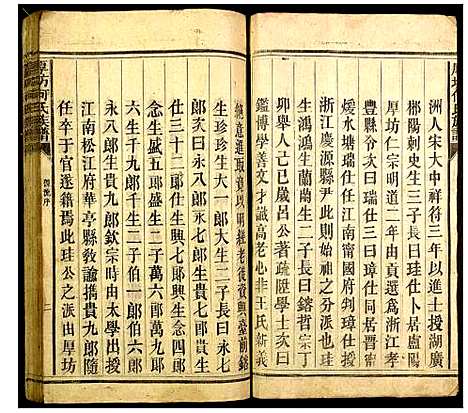 洲人宋大中祥符三年以進士授湖廣
郴陽刺史生三子長曰珪仆居盧陽
厚坊仁宗明道二年由貢選為浙江孝
豐縣令次曰瑞仕三曰璋仕同居晋
煖水塘瑞仕任江南甯國府判璋仕授
浙江慶源縣尹此則始祖之分派也珪
生鴻鴻生蘭蘭生二子長曰鎔哲宗丁
卯舉人己巳歲呂公著疏陞學士次曰
鑑博學善文才識高老心非王氏新義
絶意進取竟以明經老後資興臺前鎔
生珍珍生大一郎大二郎大一生七
郎次曰永八郎永七郎生貴七郎生
卅三十二郎仕生興七郎興七郎生念
生念五郎盛五郎生二子萬六郎萬七郎
六生千九郎千九郎生二子伯一郎伯
永八郎生貴九郎欽宗時由太學出授
江南松江府華亭縣教諭携貴九郎隨
任卒于官遂籍焉此珪公之派由厚坊
厚坊何氏族譜
舊派序
厚坊何氏族譜